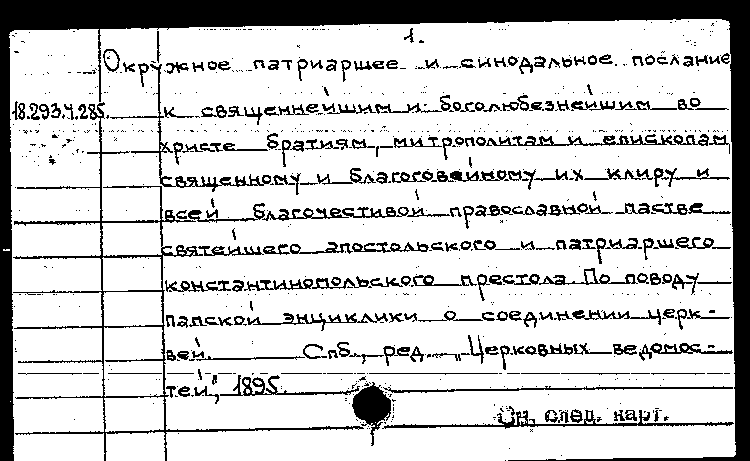 1.
Окружное патриаршее и синодальное послание
18.293.4.285. к священнейшим и боголюбезнейшим во
христе братиям, митрополитам и епископам
священному и благоговейному их клиру и
всей благочестивой православной пастве
святейшего апостольского и патриаршего
константинопольского престола По поводу
папской энциклики о соединении церк-
вей. Спб., ред. „Церковных ведомос-
тей", 1895.
См. след. карт.